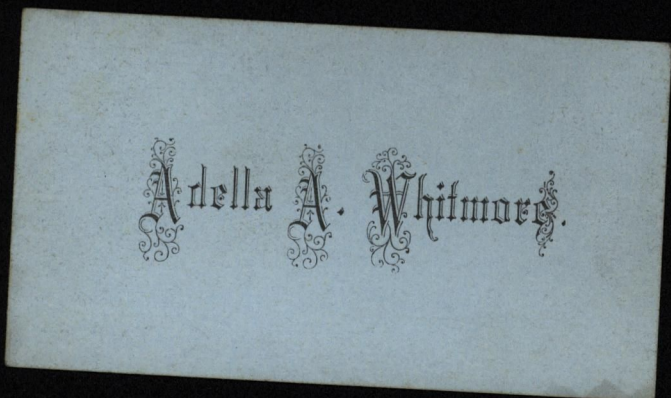 Adella A. Whitmore.